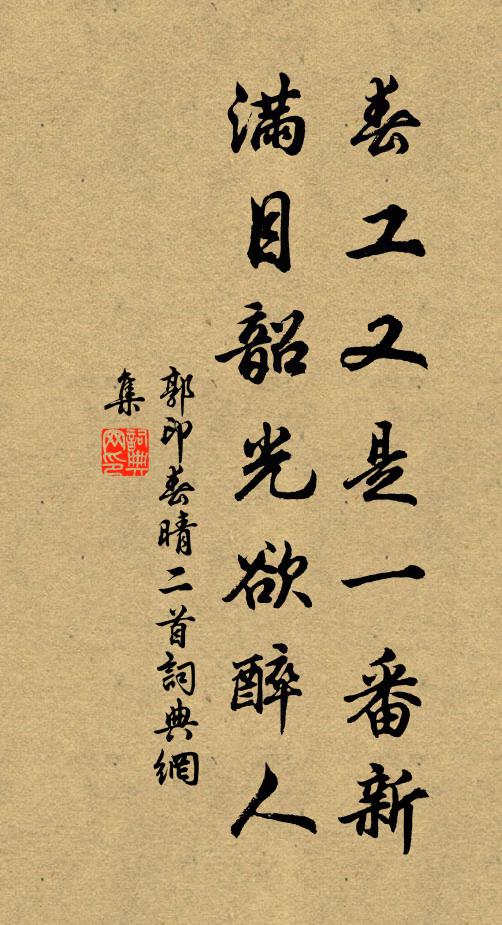 春工又是一番新
滿目韶光欲醉人
郭印春晴二首詞典網
集
詞典
网印